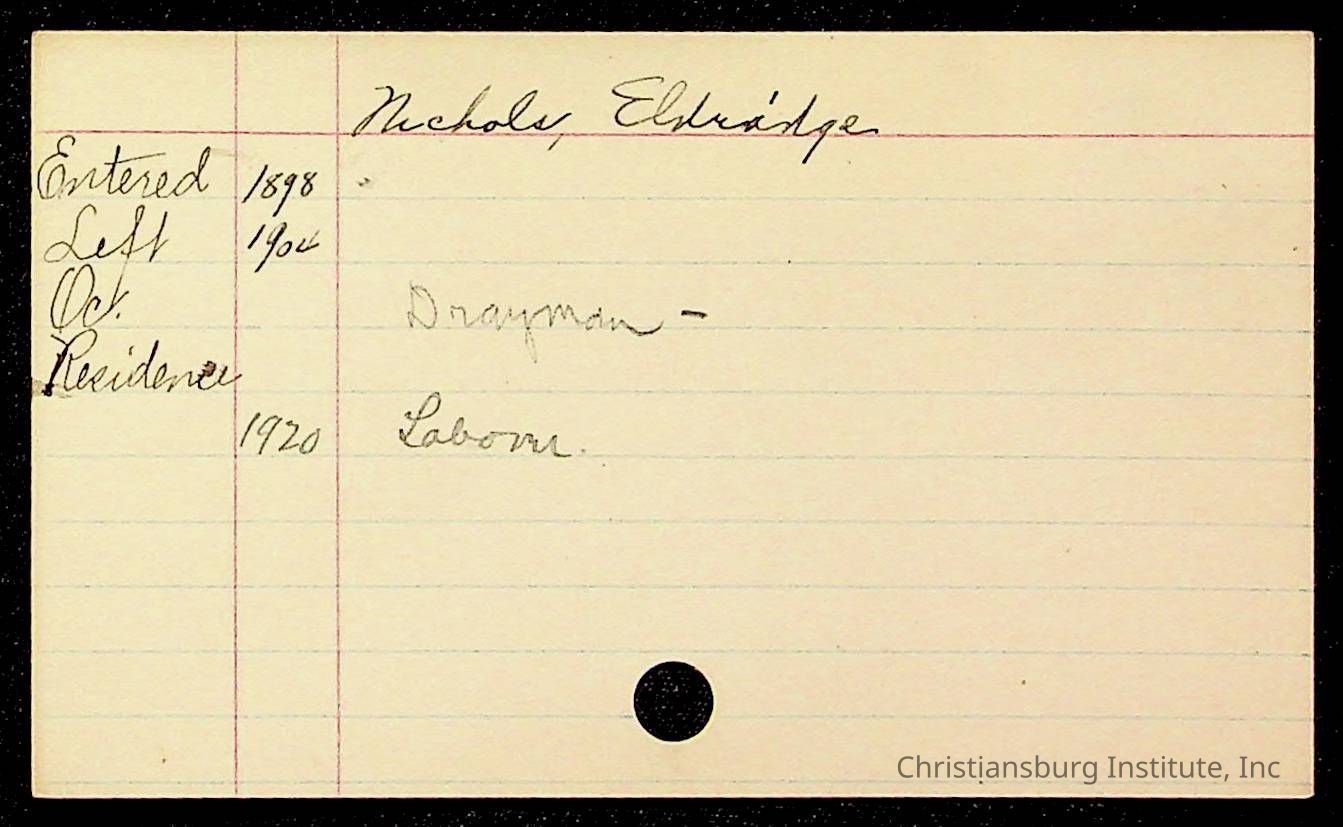 Nichols, Eldridge
Entered 1898
Left 1904
Oc. Drayman -
Residence
1920 Labour.
Christiansburg Institute, Inc